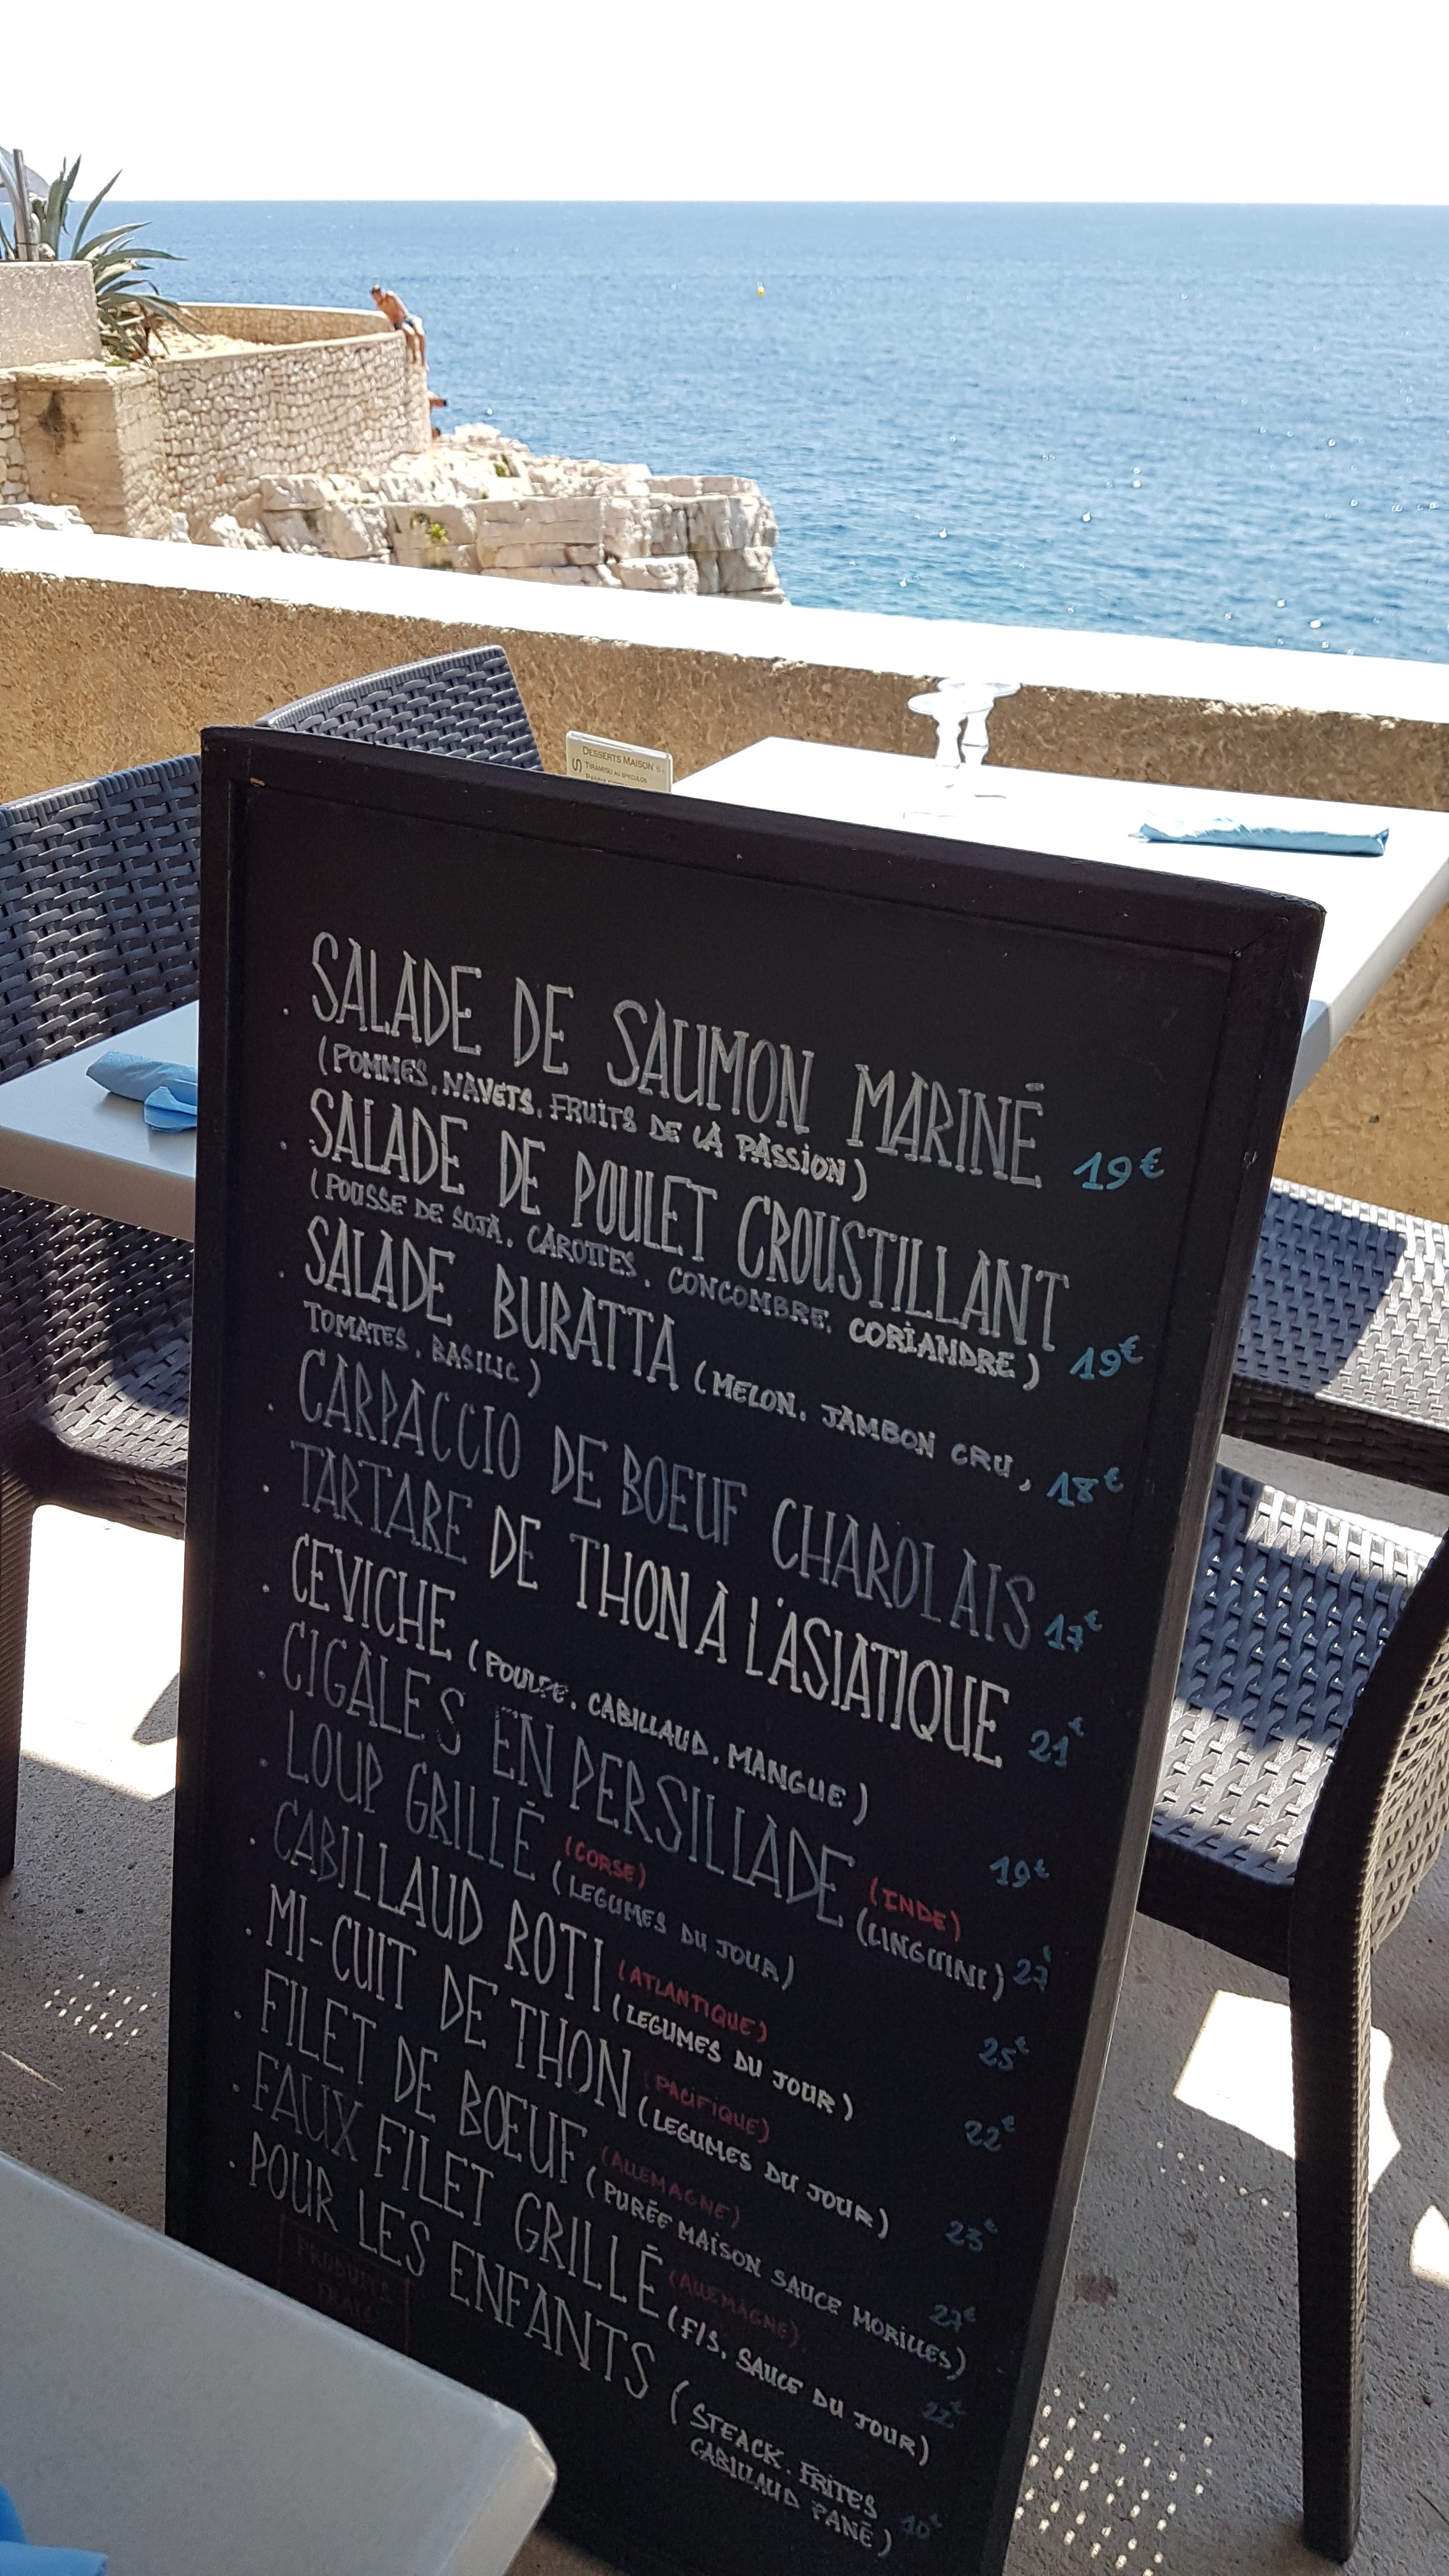 DESSERTS MAISON
TIRAMISU AU SPECULOS
. SALADE DE SAUMON MARINÉ
(POMMES, NAVETS, FRUITS DE LA PASSION) 19€
. SALADE DE POULET CROUSTILLANT
(POUSSE DE SOJA, CAROTTES, CONCOMBRE, CORIANDRE) 19€
. SALADE BURATTA (MELON, JAMBON CRU,
TOMATES, BASILIC) 18€
. CARPACCIO DE BOEUF CHAROLAIS 17€
. TARTARE DE THON À L'ASIATIQUE 21€
. CEVICHE (POULPE, CABILLAUD, MANGUE) 19€
. CIGALES EN PERSILLADE (INDE)
(LINGUINE) 27€
. LOUP GRILLÉ (CORSE)
(LEGUMES DU JOUR) 25€
. CABILLAUD ROTI (ATLANTIQUE)
(LEGUMES DU JOUR) 22€
. MI-CUIT DE THON (PACIFIQUE)
(LEGUMES DU JOUR) 23€
. FILET DE BŒUF (ALLEMAGNE)
(PURÉE MAISON SAUCE MORILLES) 27€
. FAUX FILET GRILLÉ (ALLEMAGNE)
(F/S, SAUCE DU JOUR) 22€
. POUR LES ENFANTS (STEACK, FRITES
CABILLAUD PANÉ) 10€
PRODUITS
FRAIS